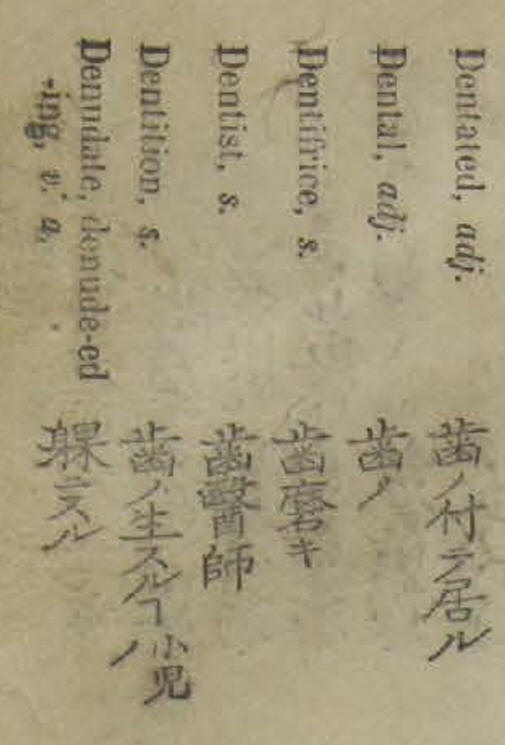 Dentated, adj. 歯ノ付テ居ル
Dental, adj. 歯ノ
Dentifrice, s. 歯磨キ
Dentist, s. 歯醫師
Dentition, s. 歯ノ生スルヿ 小児ノ
Denudate, denude-ed
-ing, v. a. 躶ニスル